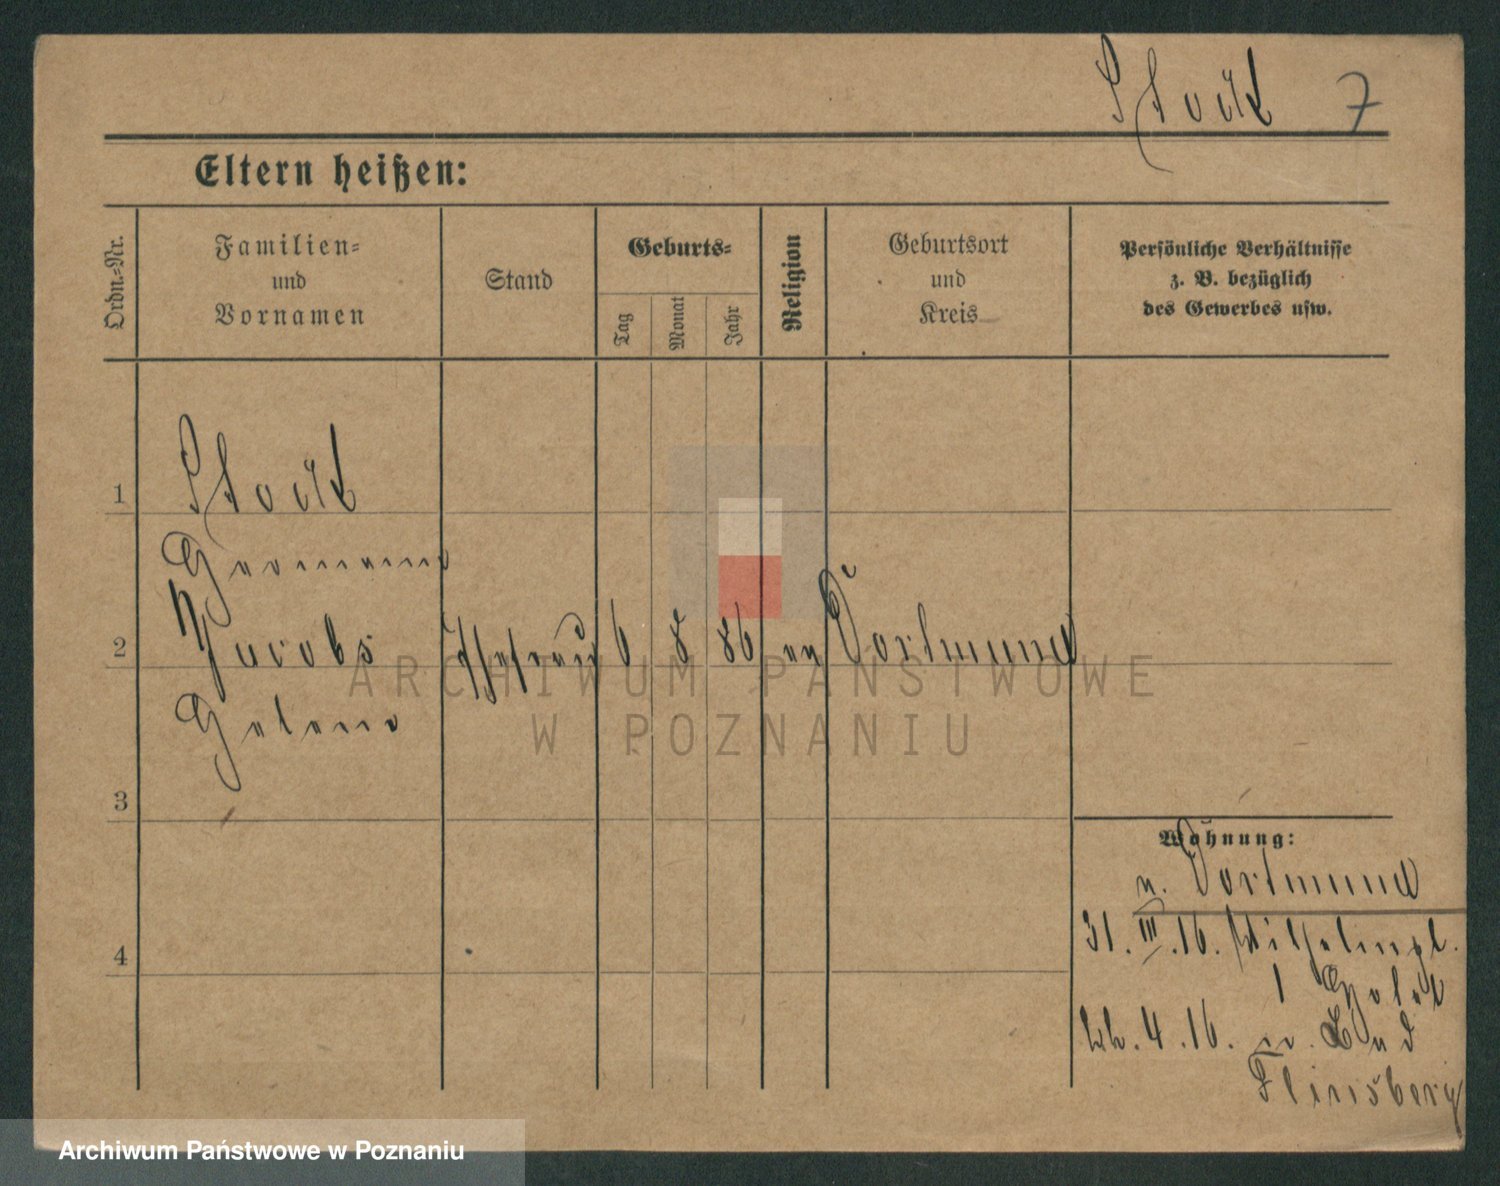 Stock 7
Eltern heißen:
Ordn.-Nr.
Familien-
und
Vornamen
Stand
Geburts-
Tag
Monat
Jahr
Religion
Geburtsort
und
Kreis
Persönliche Verhältnisse
z. B. bezüglich
des Gewerbes usw.
1 Stock
Hermann
2 Jacobs Ehefrau 6 8 86 ev Dortmund
Helene
3
4
Wohnung:
v. Dortmund
31. III. 16. Wilhelmpl.
1 Hotel
4. 16. n. Bad
Flinsberg
ARCHIWUM PAŃSTWOWE
W POZNANIU
Archiwum Państwowe w Poznaniu